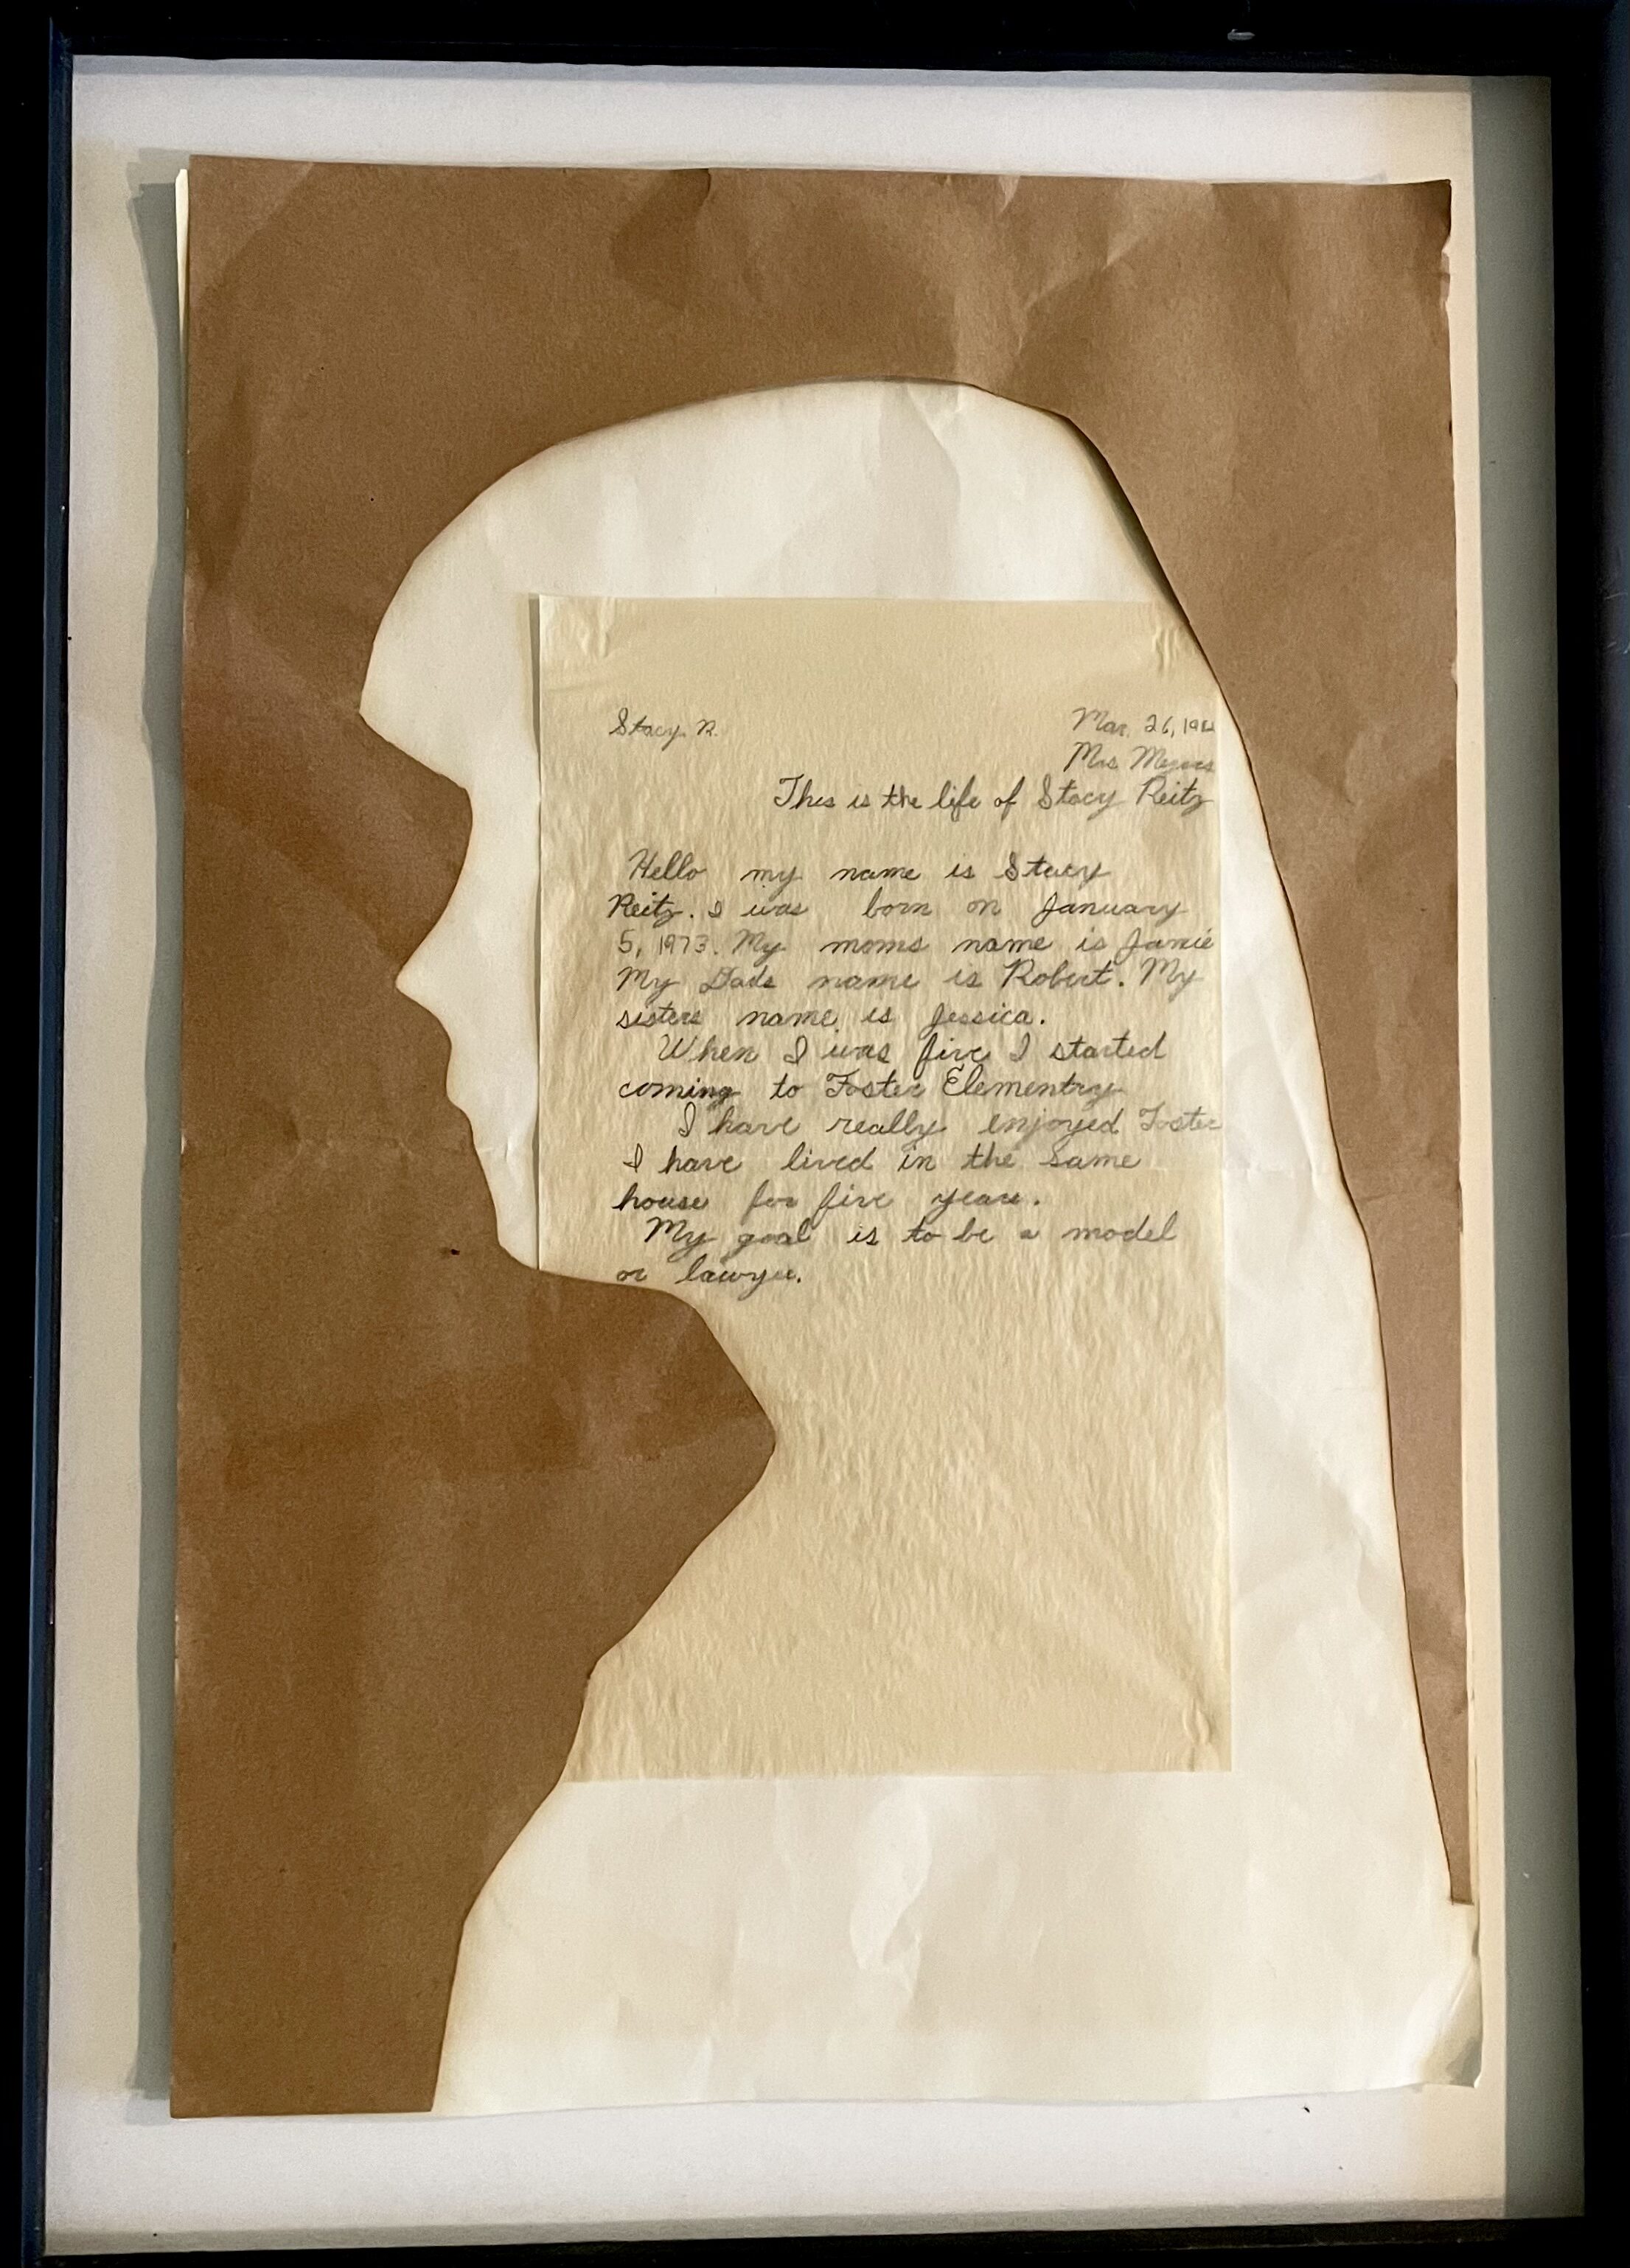 Stacy R.
Mar. 26, 198
Mrs. Myers
This is the life of Stacy Reitz
Hello my name is Stacy
Reitz. I was born on January
5, 1973. My moms name is Jamie
My Dads name is Robert. My
sisters name is Jessica.
When I was five I started
coming to Foster Elementry
I have really enjoyed Foster
I have lived in the same
house for five years.
My goal is to be a model
or lawyer.